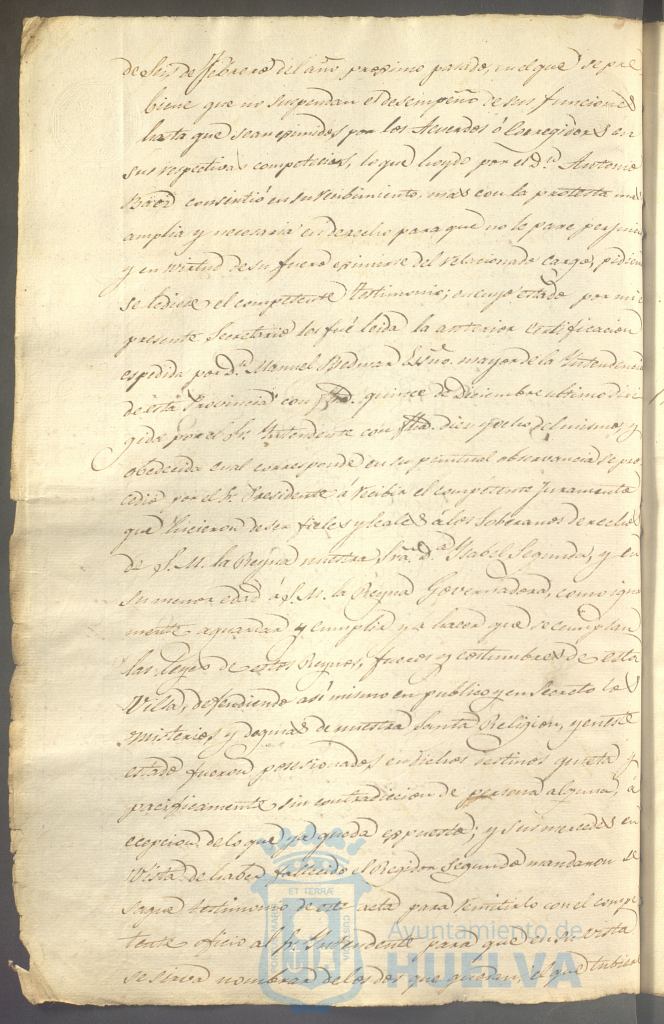 de seis de Febrero del año, proximo pasado, en el que se pre
biene que no suspendan el desempeño de sus funciones
hasta que sean eximidos por los Acuerdos ó Corregidores en
sus respectivas competencias, lo que hoydo por el D.n Antonio
consintió en su recibimiento, mas con la protesta mas
amplia y necesaria en derecho para que no le pare perjuicio
y en virtud de su fuero eximirse del relacionado cargo, pidien
se le diese el competente testimonio; en cuyo estado por mi el
presente Secretario les fué leida la anterior certificacion
espedida por D.n Manuel Bedmar Esno. mayor de la Yntendencia
de esta Provincia con fha. quince de Diciembre ultimo diri
gida por el Sr. Yntendente con fha. diez y ocho del mismo, y
obedecida cual corresponde en su puntual observancia se pro
cedió por el Sr. Presidente á recibir el competente Juramento
que hicieron de ser fieles y leales á los Soberanos derechos
de S. M. la Reyna nuestra Sra. D.a Ysabel Segunda, y en
su menor edad á S. M. la Reyna Governadora, como igual
mente aguardar y cumplir y a hacer que se cumplan
las leyes de estos Reynos, fueros y costumbres de esta
Villa, defendiendo asi mismo en publico y en secreto los
Misterios y dogmas de nuestra Santa Religion, y en este
estado fueron posesionados en dichos destinos quieta y
pacificamente sin contradicion de persona alguna, á
ecepcion de lo que ya queda expuesto; y sus mercedes en
vista de haber fallecido el Regidor Segundo mandaron se
saque testimonio de este acta para remitirlo con el compe
tente oficio al Sr. Yntendente para que en su vista
se sirva nombrar de los dos que quedan, el que tubiere
ET TERRÆ
Ayuntamiento de
HUELVA